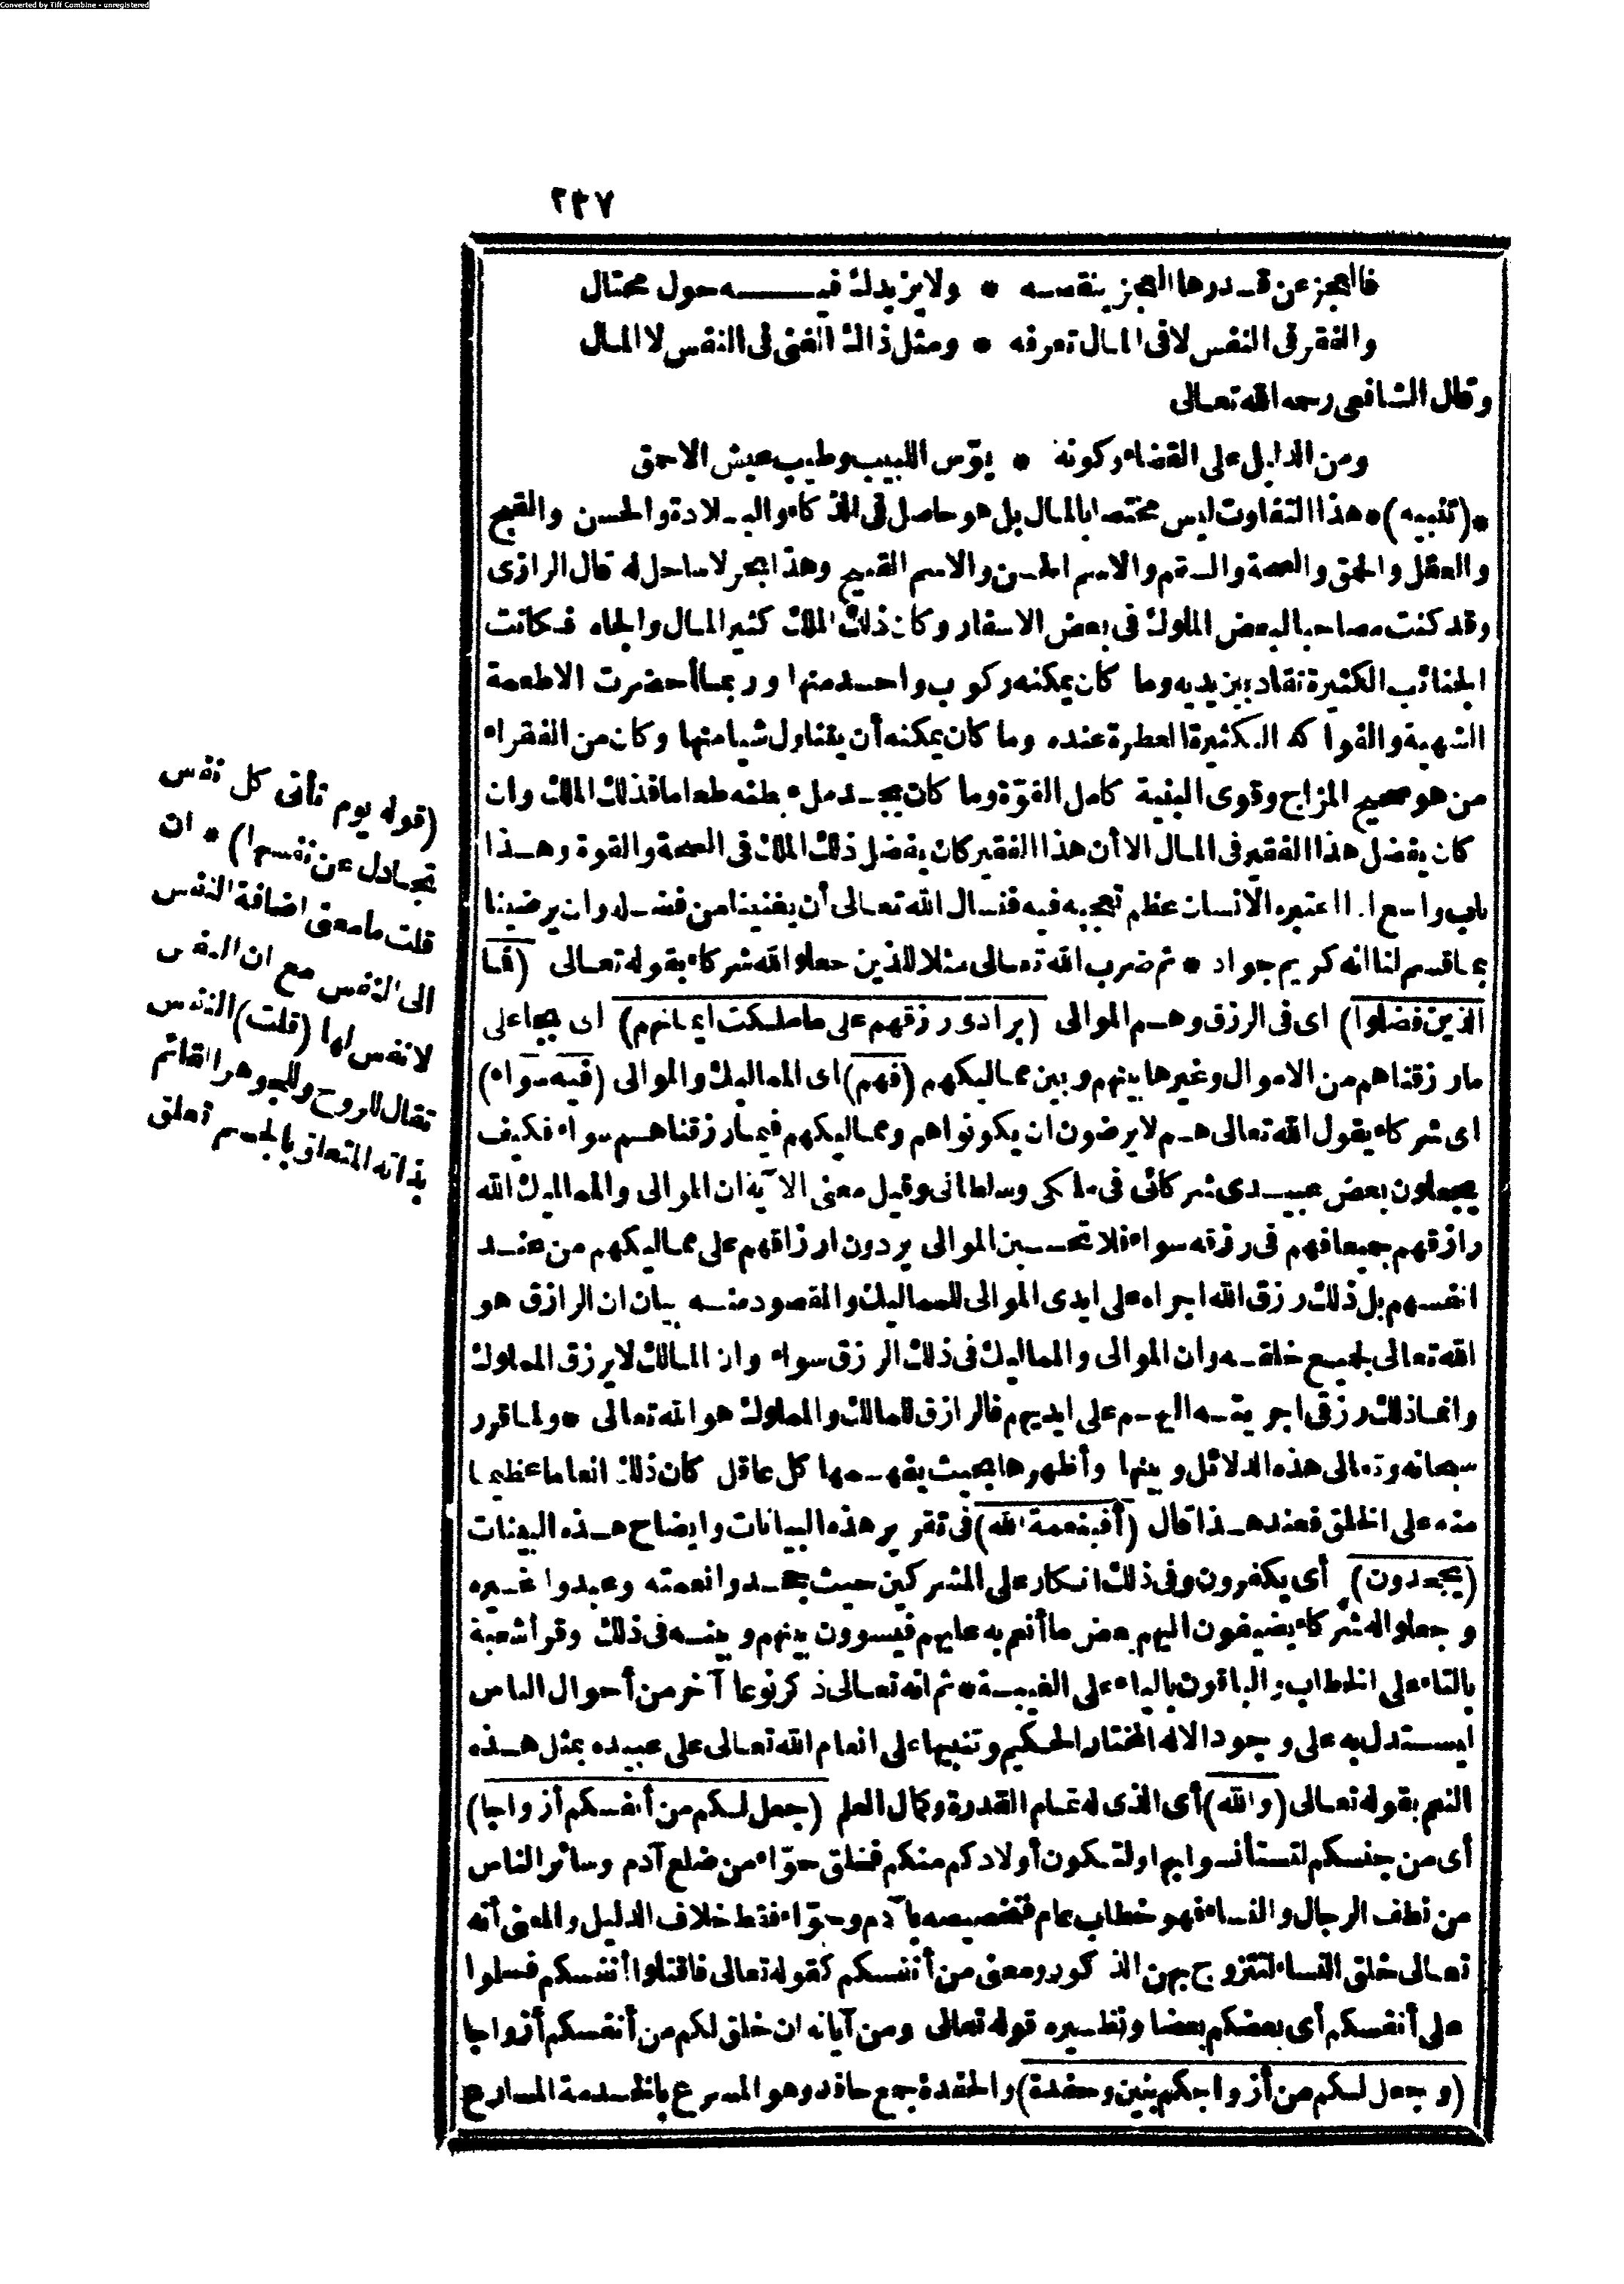 Converted by Tiff Combine - unregistered
٢٣٧
فالعجز عن قدرها العجز ينقصه * ولا يزيدك فيه حول محتال
والفقر فى النفس لا فى المال تعرفه * ومثل ذاك الغنى فى النفس لا المال
وقال الشافعى رحمه الله تعالى
ومن الدليل على القضاء وكونه * بؤس اللبيب وطيب عيش الاحمق
*(تنبيه)* هذا التفاوت ليس مختصا بالمال بل هو حاصل فى الذكاء والبلادة والحسن والقبح
والعقل والحمق والصحة والسقم والاسم الحسن والاسم القبيح وهذا بحر لا ساحل له قال الرازى
وقد كنت مصاحبا لبعض الملوك فى بعض الاسفار وكان ذلك الملك كثير المال والجاه فكانت
الجنائب الكثيرة تقاد بين يديه وما كان يمكنه ركوب واحد منها وربما أحضرت الاطعمة
الشهية والفواكه الكثيرة العطرة عنده وما كان يمكنه أن يتناول شيا منها وكان من الفقراء
من هو صحيح المزاج وقوى البنية كامل القوّة وما كان يجد ملء بطنه طعاما فذلك الملك وان
كان يفضل هذا الفقير فى المال الا أن هذا الفقير كان يفضل ذلك الملك فى الصحة والقوة وهذا
باب واسع اذا اعتبره الانسان عظم تعجبه فيه فنسال الله تعالى أن يغنينا من فضله وان يرضينا
بما قسم لنا انه كريم جواد * ثم ضرب الله تعالى مثلا للذين جعلوا الله شركاء بقوله تعالى (فما
الذين فضلوا) اى فى الرزق وهم الموالى (برادى رزقهم على ما ملكت ايمانهم) اى بجاعلى
ما رزقناهم من الاموال وغيرها بينهم وبين مماليكهم (فهم) اى المماليك والموالى (فيه سواء)
اى شركاء يقول الله تعالى هم لا يرضون ان يكونوا هم ومماليكهم فيما رزقناهم سواء فكيف
يجعلون بعض عبيدى شركائى فى ملكى وسلطانى وقيل معنى الآية ان الموالى والمماليك الله
رازقهم جميعا فهم فى رزقه سواء فلا تحسبن الموالى يردون ارزاقهم على مماليكهم من عند
انفسهم بل ذلك رزق الله اجراه على ايدى الموالى للمماليك والمقصود منه بيان ان الرازق هو
الله تعالى لجميع خلقه وان الموالى والمماليك فى ذلك الرزق سواء وان المالك لا يرزق المملوك
وانما ذلك رزقى اجريته اليهم على ايديهم فالرازق للمالك والمملوك هو الله تعالى * ولما قرر
سبحانه وتعالى هذه الدلائل وبينها وأظهرها بحيث يفهمها كل عاقل كان ذلك انعاما عظيما
منه على الخلق فعند هذا قال (أفبنعمة الله) فى تقرير هذه البيانات وايضاح هذه البينات
(يجحدون) أى يكفرون وفى ذلك انكار على المشركين حيث جحدوا نعمته وعبدوا غيره
وجعلوا له شركاء يضيفون اليهم بعض ما أنعم به عليهم فيسوون بينهم وبينه فى ذلك وقرأ شعبة
بالتاء على الخطاب والباقون بالياء على الغيبة * ثم انه تعالى ذكر نوعا آخر من أحوال الناس
ليستدل به على وجود الاله المختار الحكيم وتنبيها على انعام الله تعالى على عبيده بمثل هذه
النعم بقوله تعالى (والله) أى الذى له تمام القدرة وكمال العلم (جعل لكم من أنفسكم أزواجا)
أى من جنسكم لتستأنسوا بها ولتكون أولادكم منكم فخلق حوّاء من ضلع آدم وسائر الناس
من نطف الرجال والنساء فهو خطاب عام فتخصيصه بآدم وحوّاء فقط خلاف الدليل والمعنى أنه
تعالى خلق النساء لتتزوج بهن الذكور ومعنى من أنفسكم كقوله تعالى فاقتلوا أنفسكم فسلموا
على أنفسكم أى بعضكم بعضا ونظيره قوله تعالى ومن آياته ان خلق لكم من أنفسكم أزواجا
(وجعل لكم من أزواجكم بنين وحفدة) والحفدة جمع حافد وهو المسرع بالخدمة المسارع
(قوله يوم تأتى كل نفس
تجادل عن نفسها) * ان
قلت ما معنى اضافة النفس
الى النفس مع ان النفس
لا نفس لها (قلت) النفس
تقال للروح وللجوهر القائم
بذاته المتعلق بالجسم تعلق